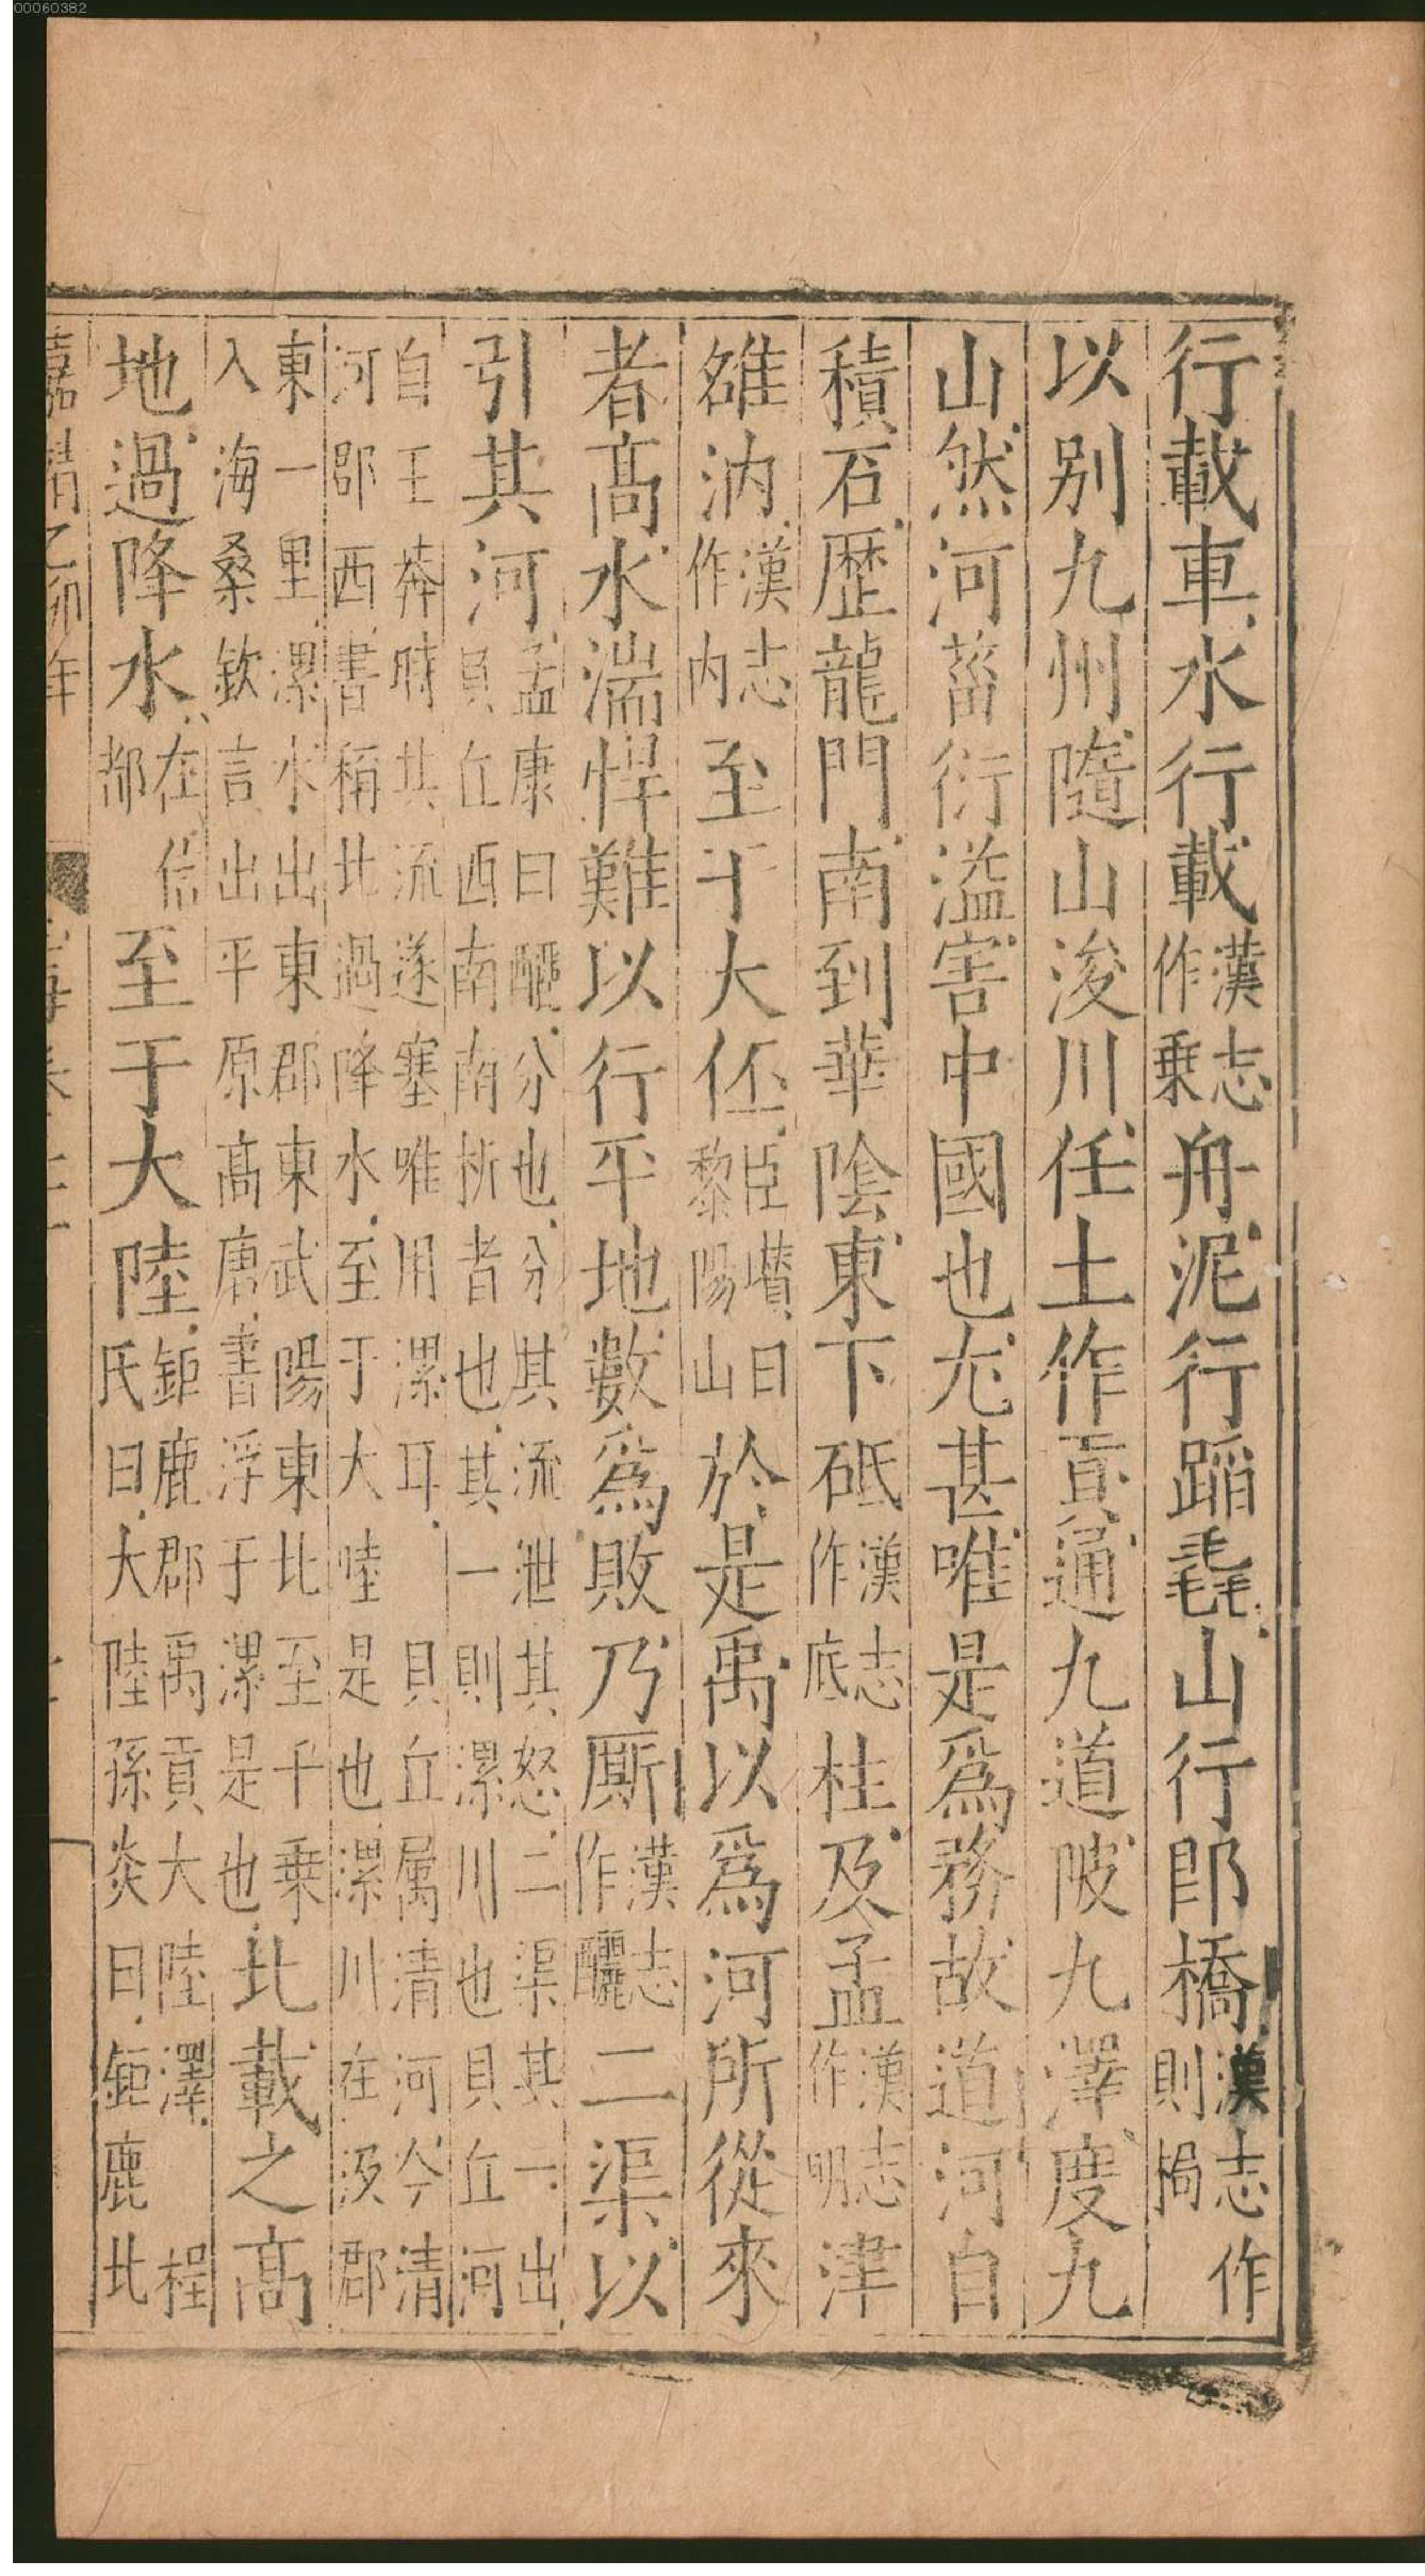 00060382
行載車水行載漢志作乗舟泥行蹈毳山行即橋漢志作則梮
以别九州隨山浚川任土作貢通九道陂九澤度九
山然河菑衍溢害中國也尤甚唯是爲務故道河自
積石歴龍門南到華隂東下砥漢志作底柱及孟漢志作明津
雒汭漢志作内至于大伾臣瓚曰黎陽山於是禹以爲河所從來
者髙水湍悍難以行平地數爲敗乃厮漢志作釃二渠以
引其河孟康曰釃分也分其流泄其怒二渠其一出貝丘西南南折者也其一則漯川也貝丘河
自王莽時共流遂塞唯用漯耳貝丘属清河今清河郡西書稱北過降水至于大陸是也漯川在汲郡
東一里漯水出東郡東武陽東北至千乗入海桑欽言出平原髙唐書浮于漯是也北載之髙
地過降水在信都至于大陸鉅鹿郡禹貢大陸澤程氏曰大陸孫炎曰鉅鹿北
嘉靖乙卯年